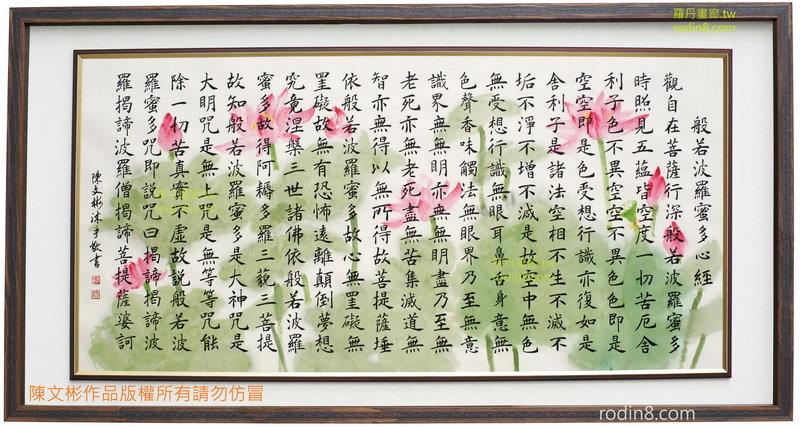 羅丹畫廊.tw
rodin8.com
般若波羅蜜多心經
觀自在菩薩行深般若波羅蜜多
時照見五蘊皆空度一切苦厄舍
利子色不異空空不異色色即是
空空即是色受想行識亦復如是
舍利子是諸法空相不生不滅不
垢不淨不增不減是故空中無色
無受想行識無眼耳鼻舌身意無
色聲香味觸法無眼界乃至無意
識界無無明亦無無明盡乃至無
老死亦無老死盡無苦集滅道無
智亦無得以無所得故菩提薩埵
依般若波羅蜜多故心無罣礙無
罣礙故無有恐怖遠離顛倒夢想
究竟涅槃三世諸佛依般若波羅
蜜多故得阿耨多羅三藐三菩提
故知般若波羅蜜多是大神咒是
大明咒是無上咒是無等等咒能
除一切苦真實不虛故說般若波
羅蜜多咒即說咒曰揭諦揭諦波
羅揭諦波羅僧揭諦菩提薩婆訶
陳文彬沐手敬書
陳文彬作品版權所有請勿仿冒
rodin8.com